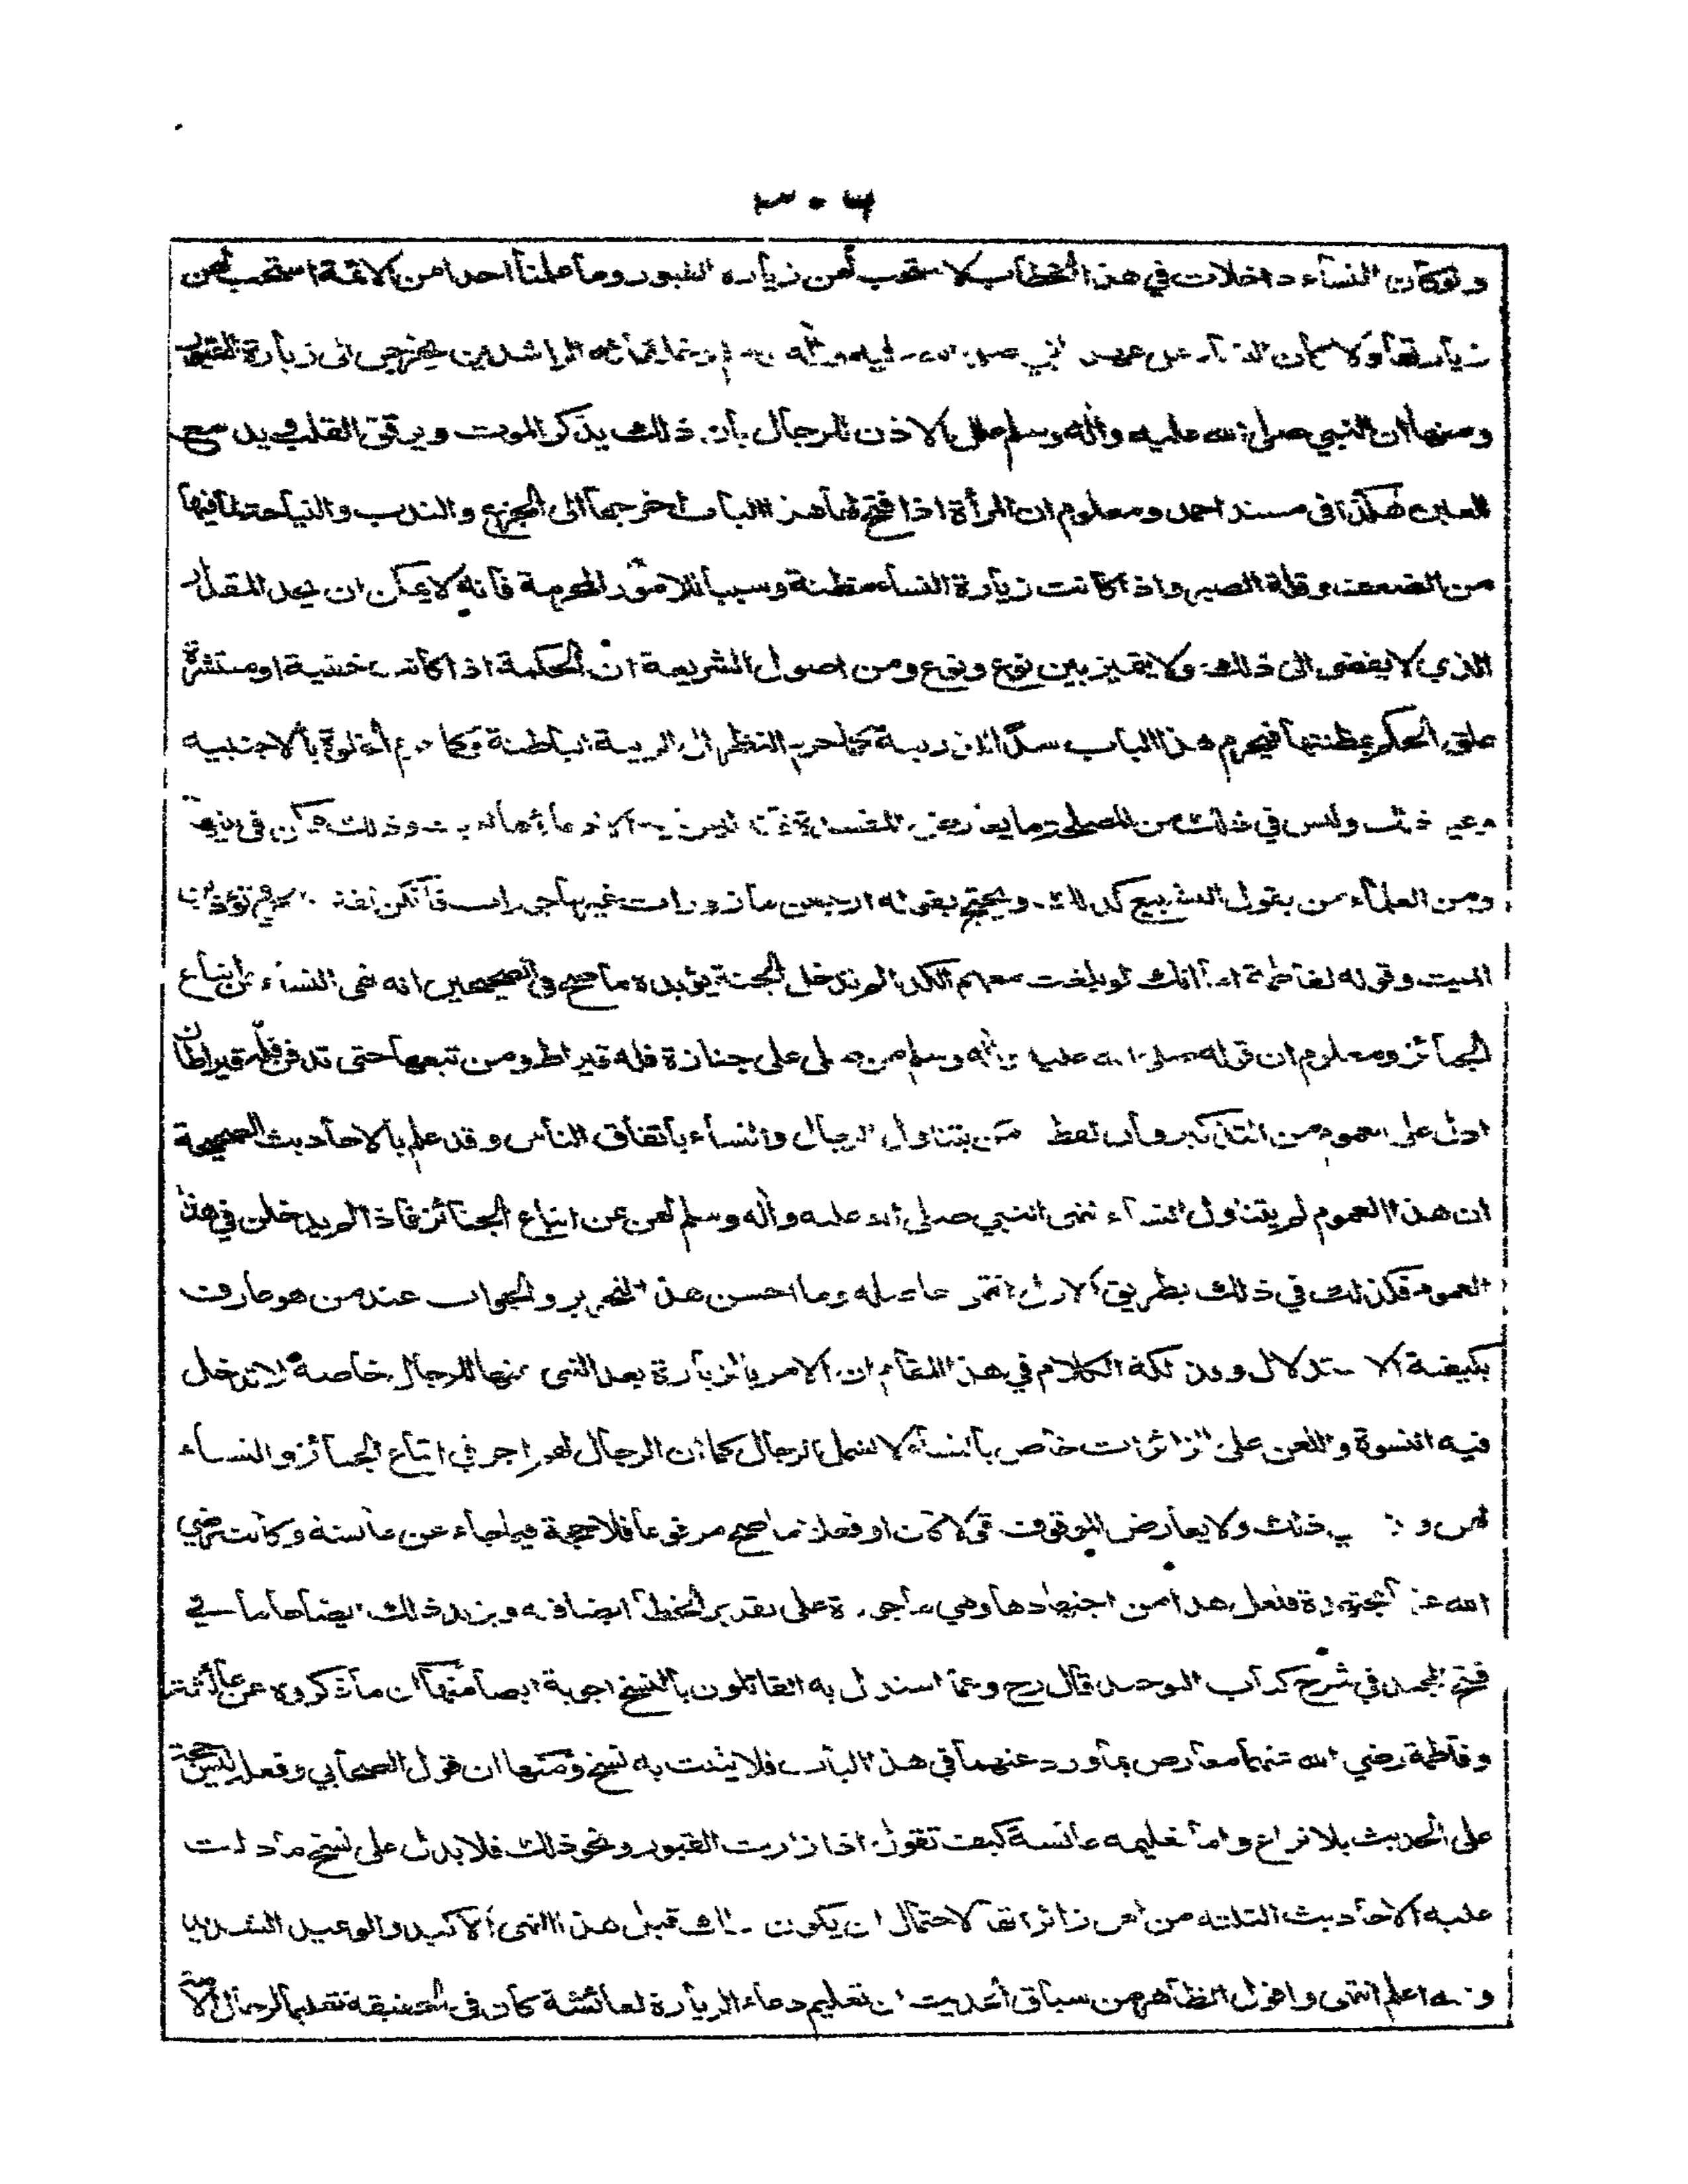 ٣٠٦
ولوكان النساء داخلات في هذا الخطاب لاستحب لهن زيارة القبور وما علمنا احدا من الائمة استحب لهن
زيارتها ولا كان النساء على عهد النبي صلى الله عليه وآله وسلم وخلفائه الراشدين يخرجن الى زيارة القبور
ومنها ان النبي صلى الله عليه وآله وسلم علل الاذن للرجال بان ذلك يذكر الموت ويرقق القلب ويدمع
العين هكذا فى مسند احمد ومعلوم ان المرأة اذا فتح لها هذا الباب اخرجها الى الجزع والندب والنياحة لما فيها
من الضعف وقلة الصبر واذا كانت زيارة النساء مظنة وسببا للامور المحرمة فانه لا يمكن ان يحد المقدار
الذي لا يفضى الى ذلك ولا يتميز بين نوع ونوع ومن اصول الشريعة ان الحكمة اذا كانت خفية او منتشرة
علق الحكم بمظنتها فيحرم هذا الباب سدا للذريعة كما حرم النظر الى الزينة الباطنة وكما حرم الخلوة بالاجنبية
وغير ذلك وليس في ذلك من المصلحة ما يعارض المفسدة فانه ليس فيه الا دعاءها للميت وذلك ممكن فى بيتها
ومن العلماء من يقول التشييع كذلك ويحتج بقوله ارجعن مأزورات غير مأجورات فانكن تفتن الحي وتؤذين
الميت وقوله لفاطمة اما انك لو بلغت معهم الكدى لم تدخلي الجنة يؤيده ما صح في الصحيحين انه نهى النساء عن اتباع
الجنائز ومعلوم ان قوله صلى الله عليه وآله وسلم من صلى على جنازة فله قيراط ومن تبعها حتى تدفن فله قيراطان
ادل على العموم من التذكير وان لفظ من يتناول الرجال والنساء باتفاق الناس وقد علم بالاحاديث الصحيحة
ان هذا العموم لم يتناول النساء لنهى النبي صلى الله عليه وآله وسلم لهن عن اتباع الجنائز فاذا لم يدخلن في هذا
العموم فكذلك في ذلك بطريق الاولى انتهى حاصله وما احسن هذا التحرير والجواب عند من هو عارف
بكيفية الاستدلال وفذلكة الكلام في هذا المقام ان الامر بالزيارة بعد النهى عنها للرجال خاصة لا تدخل
فيه النسوة واللعن على الزائرات خاص بالنساء لا يشمل الرجال كما ان الرجال لهم اجر في اتباع الجنائز والنساء
ليس في ذلك ولا يعارض الموقوف قولا كان او فعلا لما صح مرفوعا فلا حجة فيما جاء عن عائشة وكانت رضي
الله عنها مجتهدة فلعل هذا من اجتهادها وهي مأجورة على تقدير الخطأ ايضا فيه ويزيد ذلك ايضاحا ما في
فتح المجيد في شرح كتاب التوحيد قال رح وعما استدل به القائلون بالنسخ اجوبة ايضا منها ان ما ذكروه عن عائشة
وفاطمة رضي الله عنهما معارض بما ورد عنهما في هذا الباب فلا يثبت به نسخ ومنها ان قول الصحابي وفعله ليس حجة
على الحديث بلا نزاع واما تعليمه عائشة كيف تقول اذا زارت القبور ونحو ذلك فلا يدل على نسخ ما دلت
عليه الاحاديث الثلثة من لعن زائراتها لاحتمال ان يكون ذلك قبل هذا النهى الاكيد والوعيد الشديد
والله اعلم انتهى واقول الظاهر من سياق الحديث ان تعليم دعاء الزيارة لعائشة كان فى الحقيقة تعليما لرجال الامة